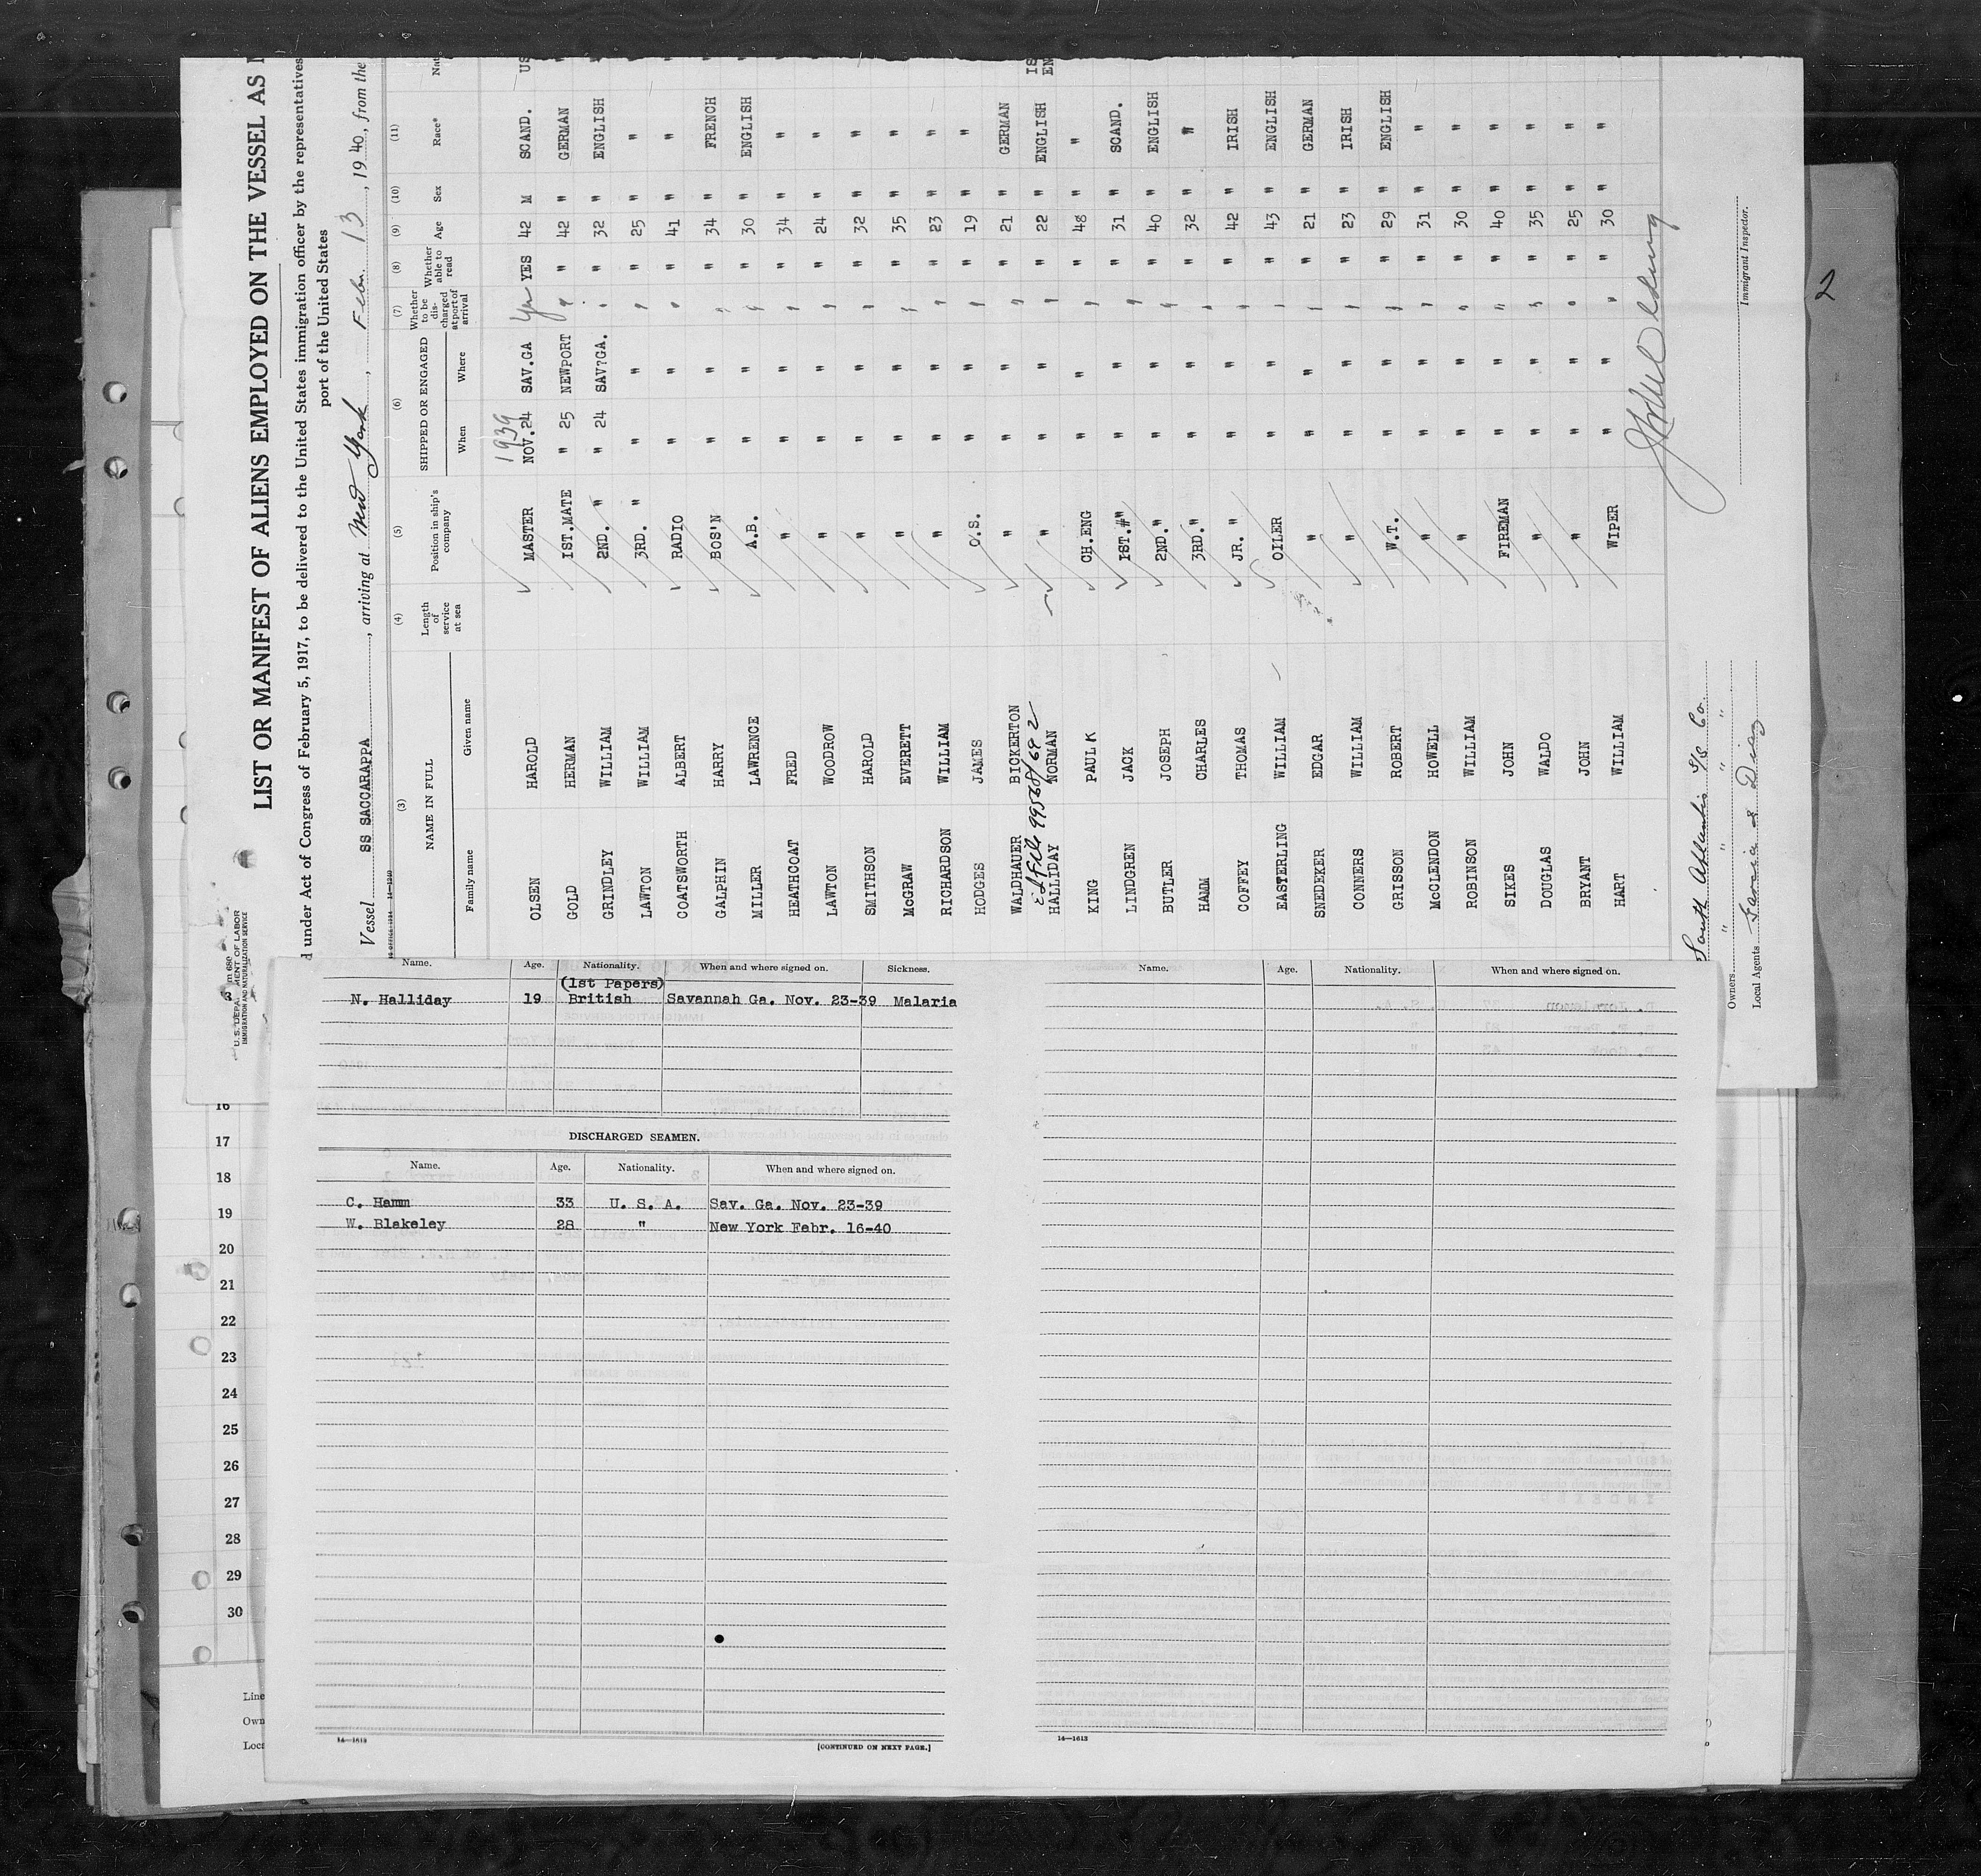 U.S. DEPARTMENT OF LABOR
IMMIGRATION AND NATURALIZATION SERVICE
LIST OR MANIFEST OF ALIENS EMPLOYED ON THE VESSEL AS
d under Act of Congress of February 5, 1917, to be delivered to the United States immigration officer by the representatives
port of the United States
Vessel SS SACCARAPPA, arriving at New York, Febr. 13, 1940, from the
(3) (4) (5) (6) (7) (8) (9) (10) (11)
NAME IN FULL Length of service at sea Position in ship's company SHIPPED OR ENGAGED Whether to be discharged at port of arrival Whether able to read Age Sex Race* Nat
Family name Given name When Where
1939
OLSEN HAROLD MASTER NOV.24 SAV.GA Yes YES 42 M SCAND. US
GOLD HERMAN 1ST.MATE " 25 NEWPORT " " 42 " GERMAN "
GRINDLEY WILLIAM 2ND. " " 24 SAV?GA. " " 32 " ENGLISH "
LAWTON WILLIAM 3RD. " " " " " 25 " " "
COATSWORTH ALBERT RADIO " " " " 41 " " "
GALPHIN HARRY BOS'N " " " " 34 " FRENCH "
MILLER LAWRENCE A.B. " " " " 30 " ENGLISH "
HEATHCOAT FRED " " " " " 34 " " "
LAWTON WOODROW " " " " " 24 " " "
SMITHSON HAROLD " " " " " 32 " " "
McGRAW EVERETT " " " " " 35 " " "
RICHARDSON WILLIAM " " " " " 23 " " "
HODGES JAMES O.S. " " " " 19 " " "
WALDHAUER BICKERTON " " " " " 21 " GERMAN "
HALLIDAY NORMAN " " " " " 22 " ENGLISH
KING PAUL K CH.ENG " " " " 48 " "
LINDGREN JACK 1ST.#" " " " " 31 " SCAND.
BUTLER JOSEPH 2ND." " " " " 40 " ENGLISH
HAMM CHARLES 3RD." " " " " 32 " "
COFFEY THOMAS JR. " " " " " 42 " IRISH
EASTERLING WILLIAM OILER " " " " 43 " ENGLISH
SNEDEKER EDGAR " " " " " 21 " GERMAN
CONNERS WILLIAM " " " " " 23 " IRISH
GRISSON ROBERT W.T. " " " " 29 " ENGLISH
McCLENDON HOWELL " " " " " 31 " "
ROBINSON WILLIAM " " " " " 30 " "
SIKES JOHN FIREMAN " " " " 40 " "
DOUGLAS WALDO " " " " " 35 " "
BRYANT JOHN " " " " " 25 " "
HART WILLIAM WIPER " " " " 30 " "
South Atlantic S/S Co.
Owners " " " "
Local Agents
Immigrant Inspector.
2
Name. Age. Nationality. When and where signed on. Sickness.
(1st Papers)
N. Halliday 19 British Savannah Ga. Nov. 23-39 Malaria
DISCHARGED SEAMEN.
Name. Age. Nationality. When and where signed on.
C. Hamm 33 U. S. A. Sav. Ga. Nov. 23-39
W. Blakeley 28 " New York Febr. 16-40
14—1613
[CONTINUED ON NEXT PAGE.]
Name. Age. Nationality. When and where signed on.
14—1613
16
17
18
19
20
21
22
23
24
25
26
27
28
29
30
Line
Own
Loca